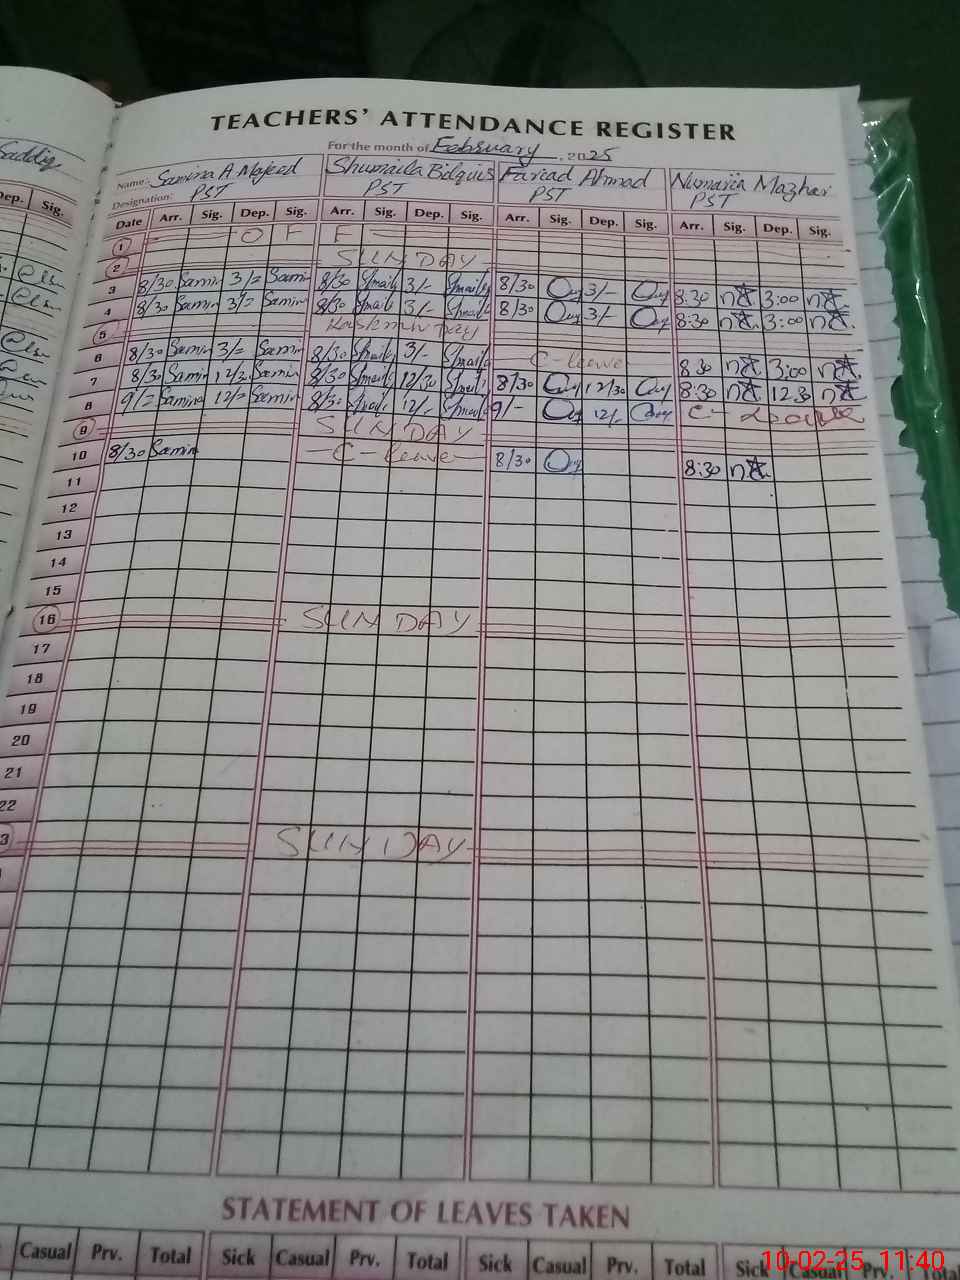 Saddiq
TEACHERS' ATTENDANCE REGISTER
For the month of February, 2025
Name: Samina A Majeed Shumaila Bilquis Faread Ahmad Numaria Mazhar
Designation: PST PST PST PST
Dep. Sig. Date Arr. Sig. Dep. Sig. Arr. Sig. Dep. Sig. Arr. Sig. Dep. Sig. Arr. Sig. Dep. Sig.
1 O F F
2 SUNDAY
3 8/30 Samin 3/= Samin 8/30 Smaila 3/- Smaila 8/30 3/- 8:30 3:00
4 8/30 Samin 3/= Samin 8/30 Smaila 3/- Smaila 8/30 3/- 8:30 3:00
5 Kashmir Day
6 8/30 Samin 3/= Samin 8/30 Smaila 3/- Smaila C-leave 8:30 3:00
7 8/30 Samin 12/30 Samin 8/30 Smaila 12/30 Smaila 8/30 12/30 8:30 12:30
8 9/= Samina 12/= Samin 8/30 Smaila 12/- Smaila 9/- 12/- C-Leave
9 SUNDAY
10 8/30 Samin C-leave 8/30 8:30
11
12
13
14
15
16 SUNDAY
17
18
19
20
21
22
3 SUNDAY
STATEMENT OF LEAVES TAKEN
Casual Prv. Total Sick Casual Prv. Total Sick Casual Prv. Total Sick Casual Prv. Total
10-02-25 11:40